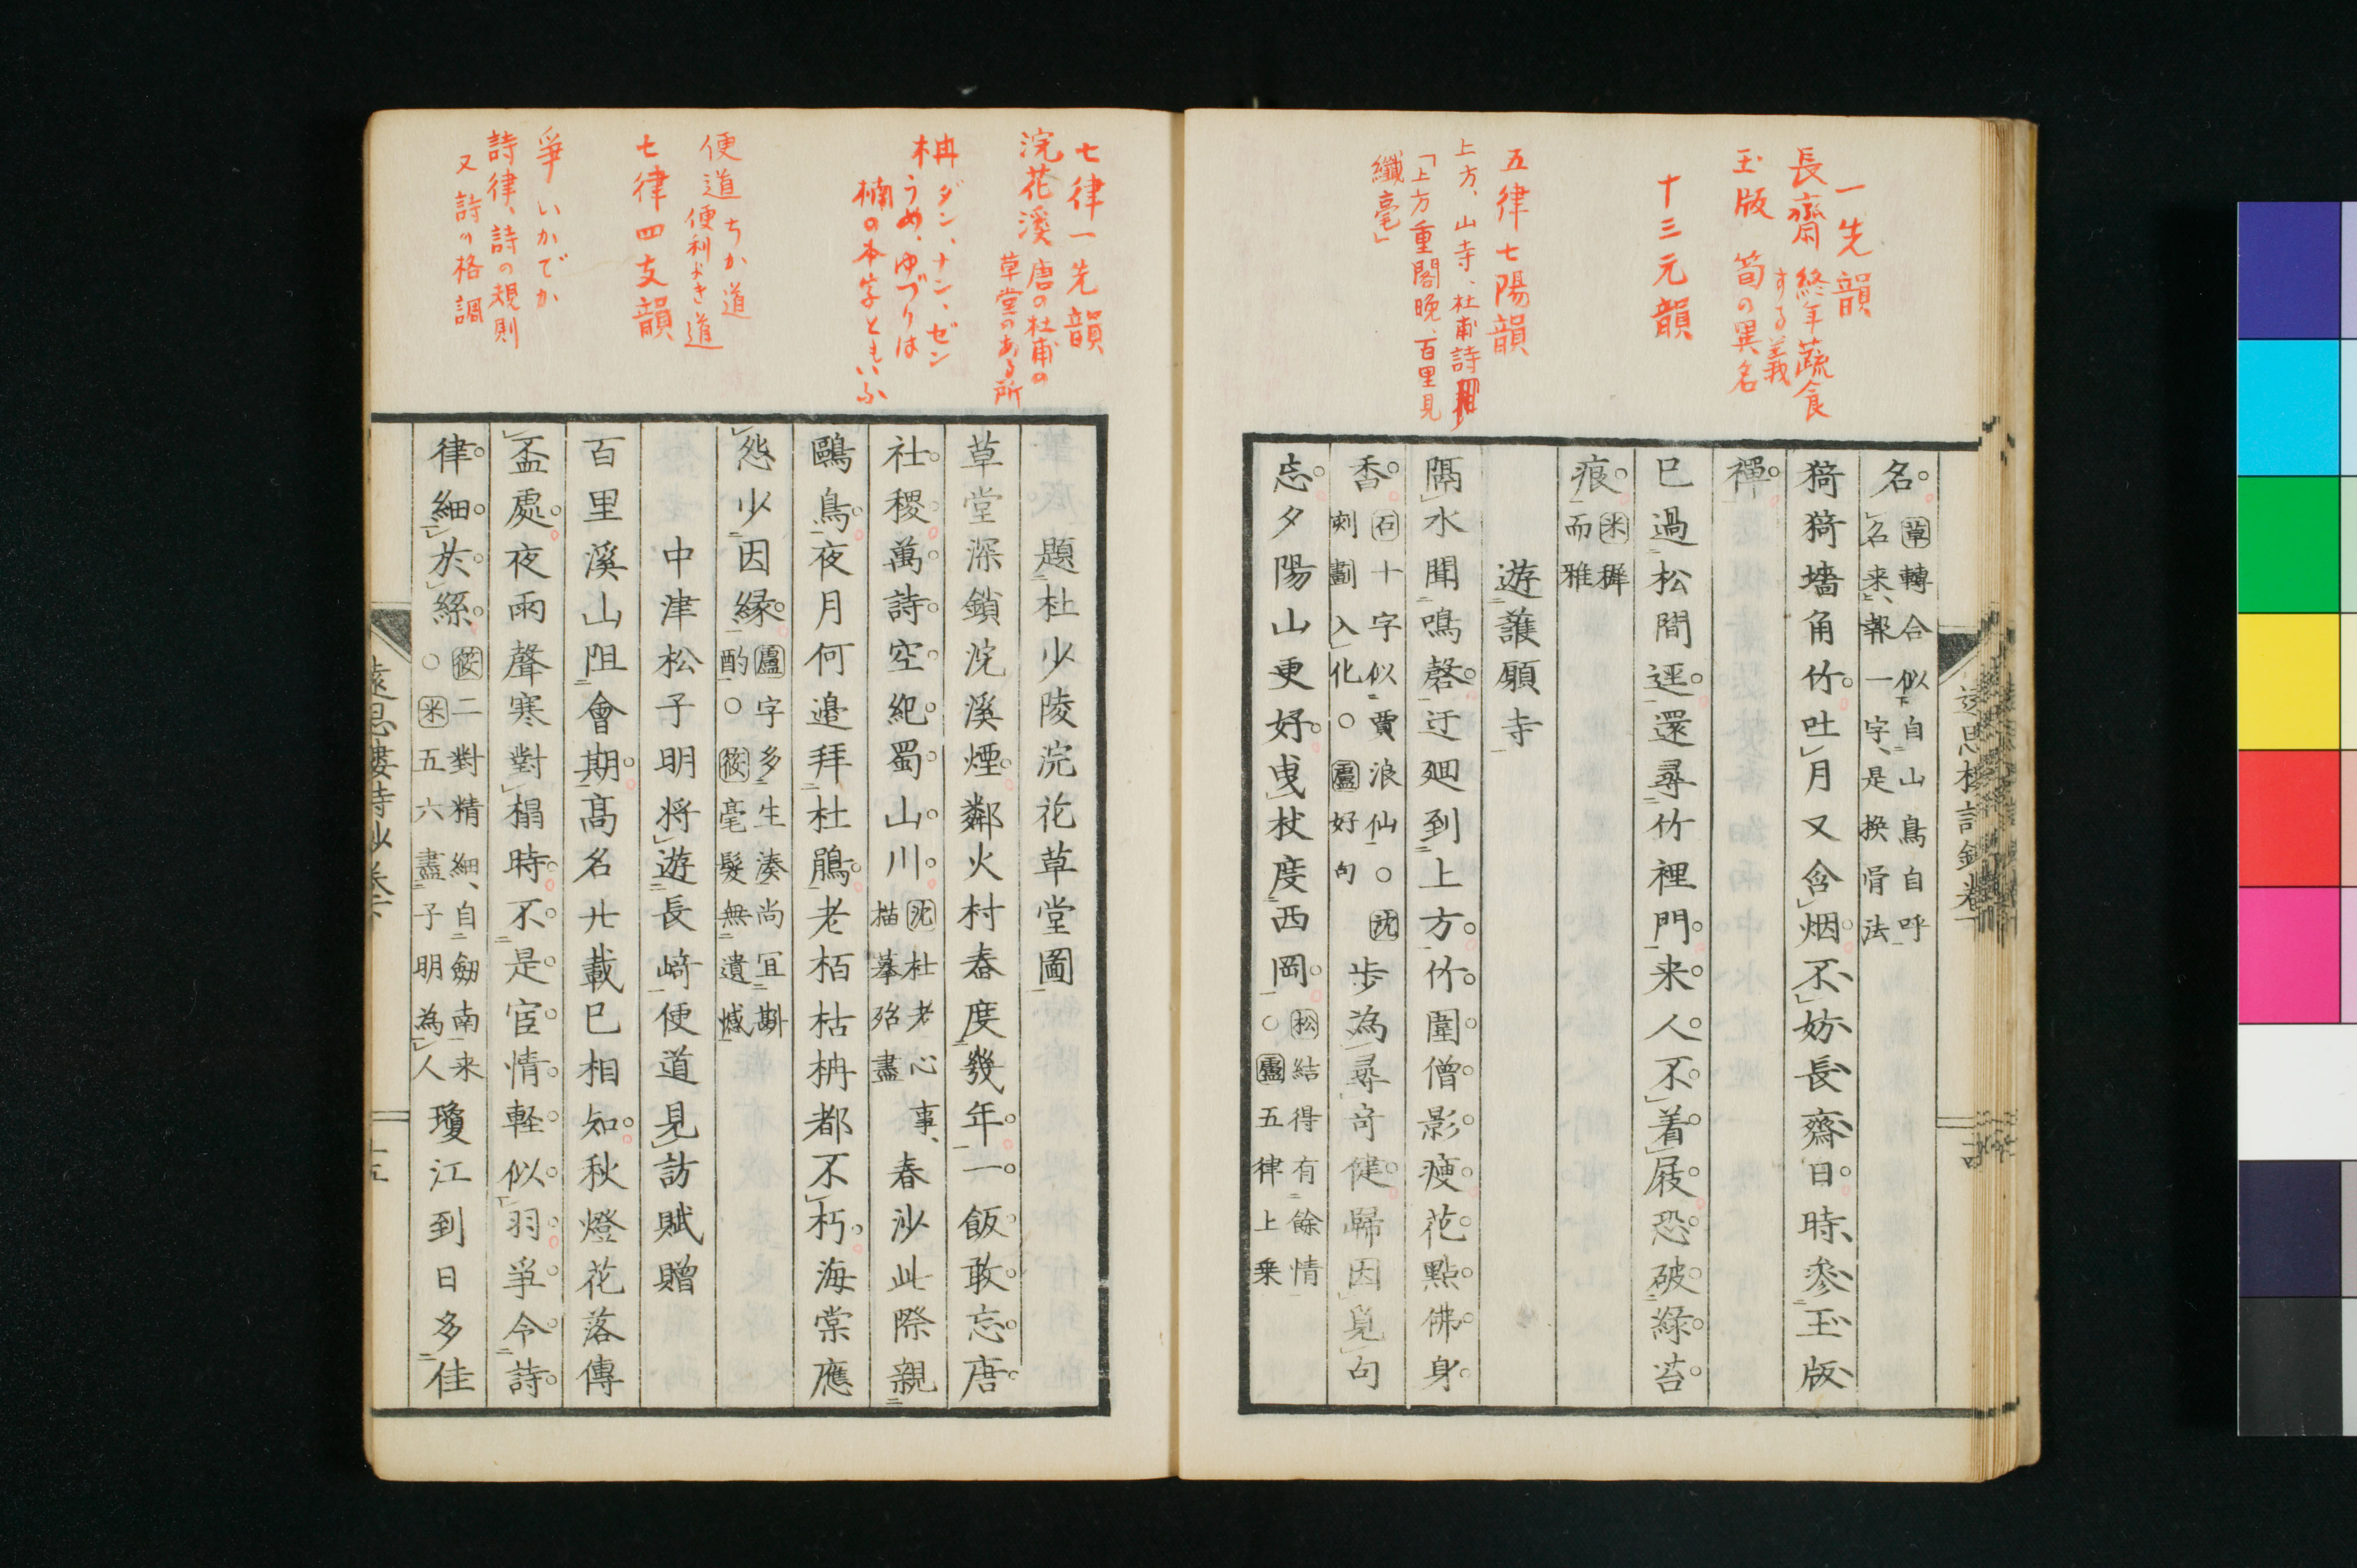 一先韻
長齋 終年蔬食
する義
玉版 筍の異名
十三元韻
五律七陽韻
上方、山寺、杜甫詩
「上方重閣晩、百里見
纖毫」
名 草轉合似自山鳥自呼
名来、報一字、是換骨法
猗猗墻角竹吐月又含烟不妨長齋日時參玉版
禪
已過松間逕還尋竹裡門来人不着屐恐破緑苔
痕 米穉
而雅
遊護願寺
隔水聞鳴磬迂廻到上方竹圍僧影痩花點佛身
香 石十字似賈浪仙○沈歩為尋奇健歸因覓句
刺劃入化○盧好句
忘夕陽山更好曳杖度西岡 松結得有餘情
○盧五律上乗
七律一先韻
浣花溪 唐の杜甫の
草堂のある所
枏 ダン、ナン、ゼン
うめ、ゆづりは
楠の本字ともいふ
便道 ちか道
便利よき道
七律四支韻
爭 いかでか
詩律、詩の規則
又 詩の格調
題杜少陵浣花草堂圖
草堂深鎖浣溪煙鄰火村舂度幾年一飯敢忘唐
社稷萬詩空紀蜀山川 沈杜老心事、春沙此際親
描摹殆盡
鷗鳥夜月何邉拜杜鵑老栢枯枏都不朽海棠應
怨少因縁 盧字多生湊尚宜斟
酌○筱毫髮無遺憾
中津松子明将遊長﨑便道見訪賦贈
百里溪山阻會期髙名廿載已相知秋燈花落傳
盃處夜雨聲寒對榻時不是宦情軽似羽爭令詩
律細於絲 筱二對精細、自劒南来
○米五六盡子明為人
瓊江到日多佳
遠思樓詩鈔卷下
十五